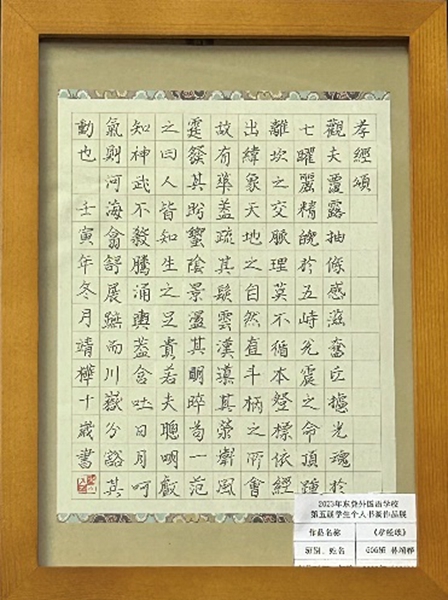 孝經頌
觀夫覆露抽條感滋奮攄光魂於
七曜麗精魄於五峙允震之命頂踵
離坎之交脈理莫不循本發標依經
出緯象天地之自然直斗柄之所會
故有華蓋疏其鬆雲漢導其縈風
霆發其蠁陰景盪其明晬苟一范
之曰人皆知生之足貴若夫聰明叡
知神武不殺騰涌輿蓋含吐日月呵
氣則河海翕舒展蹠而川嶽分豁其
動也 壬寅年冬月靖樺十歲書
2023年东莞外国语学校
第五届学生个人书画作品展
作品名称 《孝经颂》
班别、姓名 606班 林靖桦